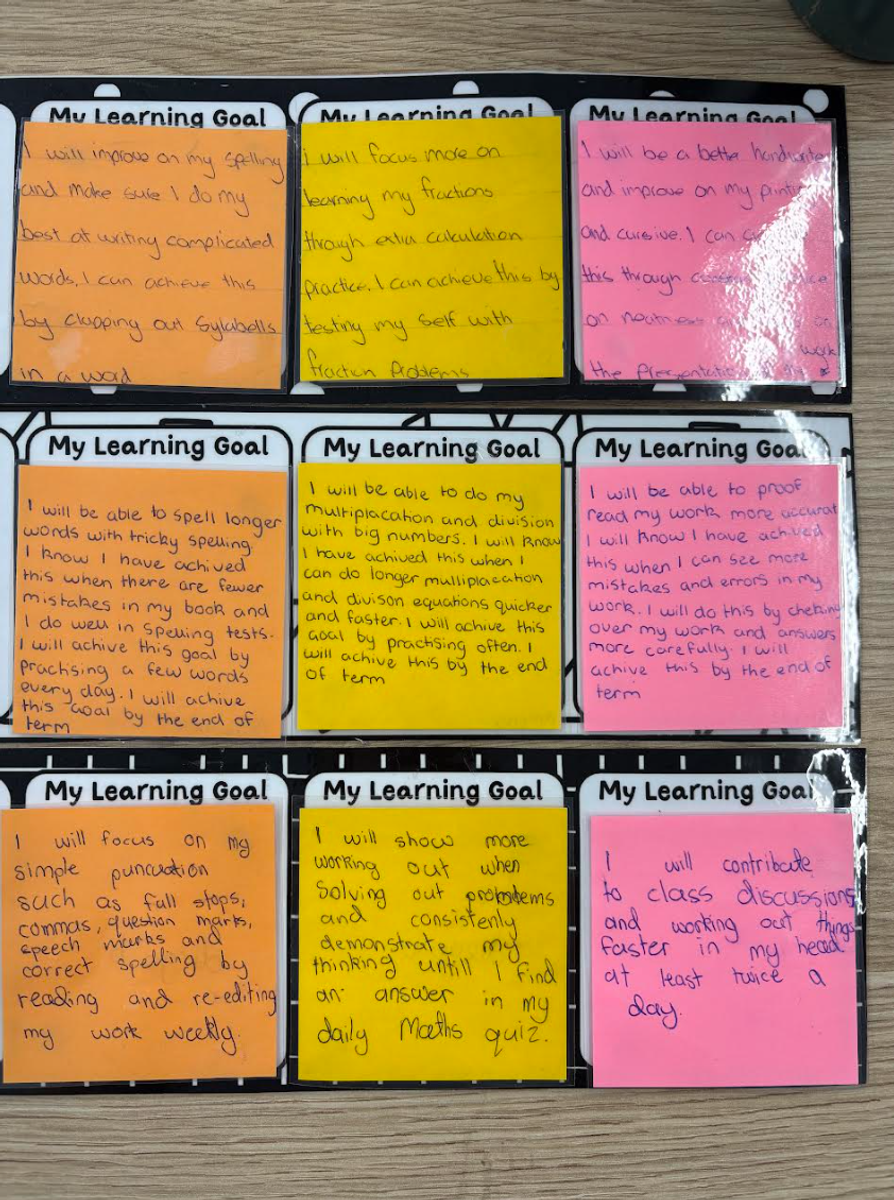 My Learning Goal
I will improve on my spelling
and make sure I do my
best at writing complicated
words. I can achieve this
by clapping out Sylabells
in a word
My Learning Goal
I will focus more on
learning my fractions
through extra calculation
practice. I can achieve this by
testing my self with
fraction Problems
My Learning Goal
I will be a better handwrite
and improve on my
and cursive. I can
this through
on neatness on
work
the
My Learning Goal
I will be able to spell longer
words with tricky spelling
I know I have achived
this when there are fewer
mistakes in my book and
I do well in spelling tests.
I will achive this goal by
practising a few words
every day. I will achive
this goal by the end of
term
My Learning Goal
I will be able to do my
multiplacation and division
with big numbers. I will know
I have achived this when I
can do longer multiplacation
and divison equations quicker
and faster. I will achive this
goal by practsing often. I
will achive this by the end
of term
My Learning Goal
I will be able to proof
read my work more accurat
I will know I have achived
this when I can see more
mistakes and errors in my
work. I will do this by cheking
over my work and answers
more carefully. I will
achive this by the end of
term
My Learning Goal
I will focus on my
simple puncuation
such as full stops,
commas, question marks,
speech marks and
correct spelling by
reading and re-editing
my work weekly.
My Learning Goal
I will show more
working out when
Solving out
and consistenly
demonstrate my
thinking untill I find
an answer in my
daily Maths quiz.
My Learning Goal
I will contribute
to class discussions
and working out things
faster in my head
at least twice a
day.